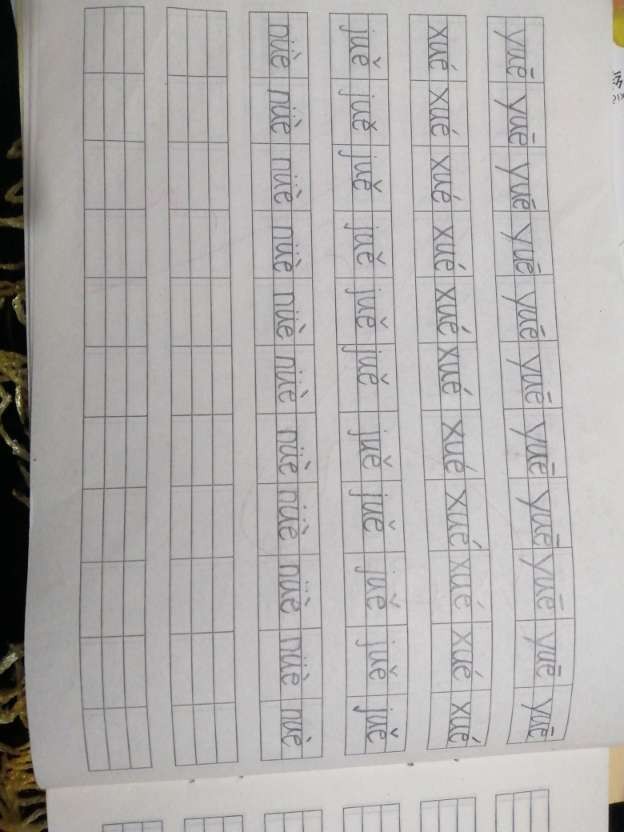 yuē yuē yuē yuē yuē yuē yuē yuē yuē yuē yuē
xué xué xué xué xué xué xué xué xué xué xué
juě juě juě juě juě juě juě juě juě juě juě
nüè nüè nüè nüè nüè nüè nüè nüè nüè nüè nüè